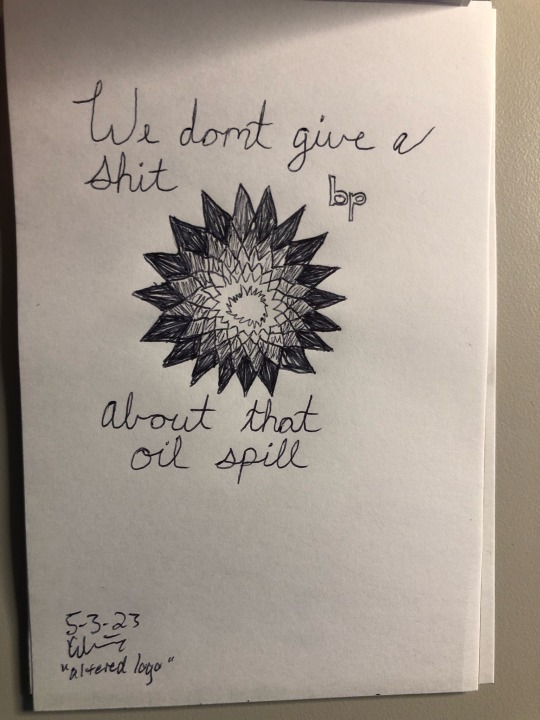 We dont give a
shit
bp
about that
oil spill
5-3-23
"altered logo"